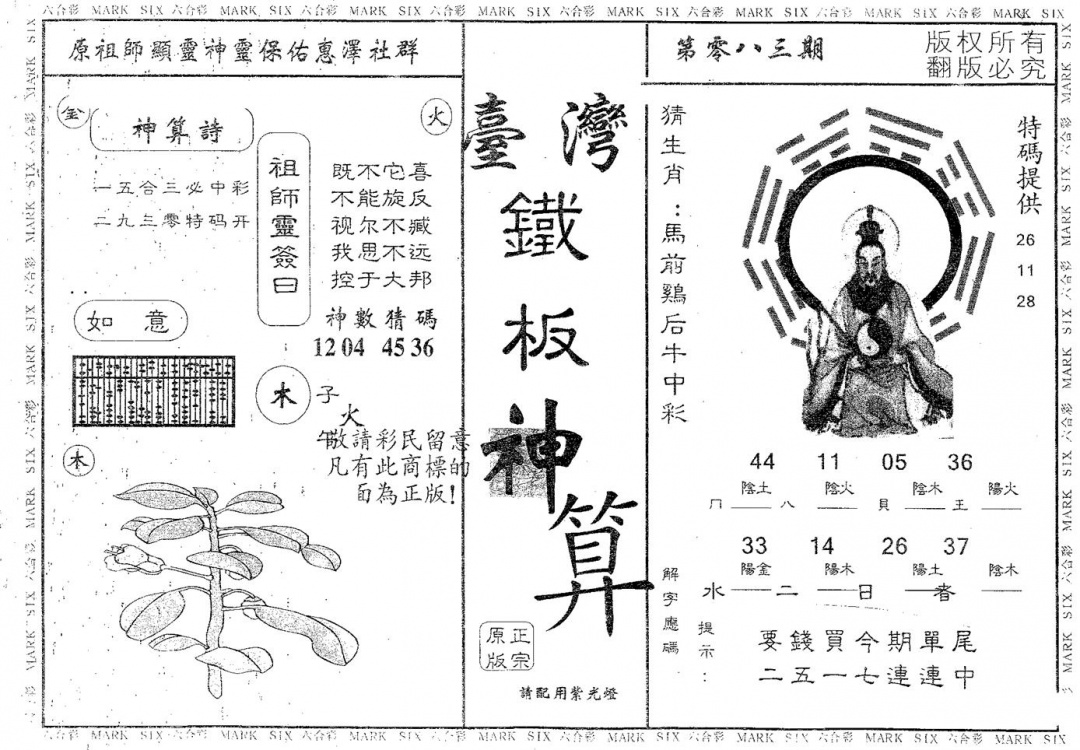 六合彩 MARK SIX 六合彩 MARK SIX 六合彩 MARK SIX 六合彩 MARK SIX 六合彩 MARK SIX 六合彩 MARK SIX 六合彩 MARK SIX 六合彩 MARK SIX
原祖師顯靈神靈保佑惠澤社群
第零八三期
版权所有
翻版必究
金
神算詩
一五合三必中彩
二九三零特码开
火
祖師靈簽曰
既不它喜
不能旋反
视尔不臧
我思不远
控于大邦
神數猜碼
12 04 45 36
如意
木
子
火
午
敬請彩民留意
凡有此商標的
面為正版!
木
臺灣
鐵板神算
正宗
原版
請配用紫光燈
猜生肖:馬前鷄后牛中彩
特碼提供
26
11
28
44 11 05 36
陰土 陰火 陰木 陽火
冂 八 貝 王
33 14 26 37
陽金 陽木 陽土 陰木
水 二 日 春
解字應碼
提示:
要錢買今期單尾
二五一七連連中
六合彩 MARK SIX 六合彩 MARK SIX 六合彩 MARK SIX 六合彩 MARK SIX 六合彩 MARK SIX 六合彩 MARK SIX 六合彩 MARK SIX 六合彩 MARK SIX